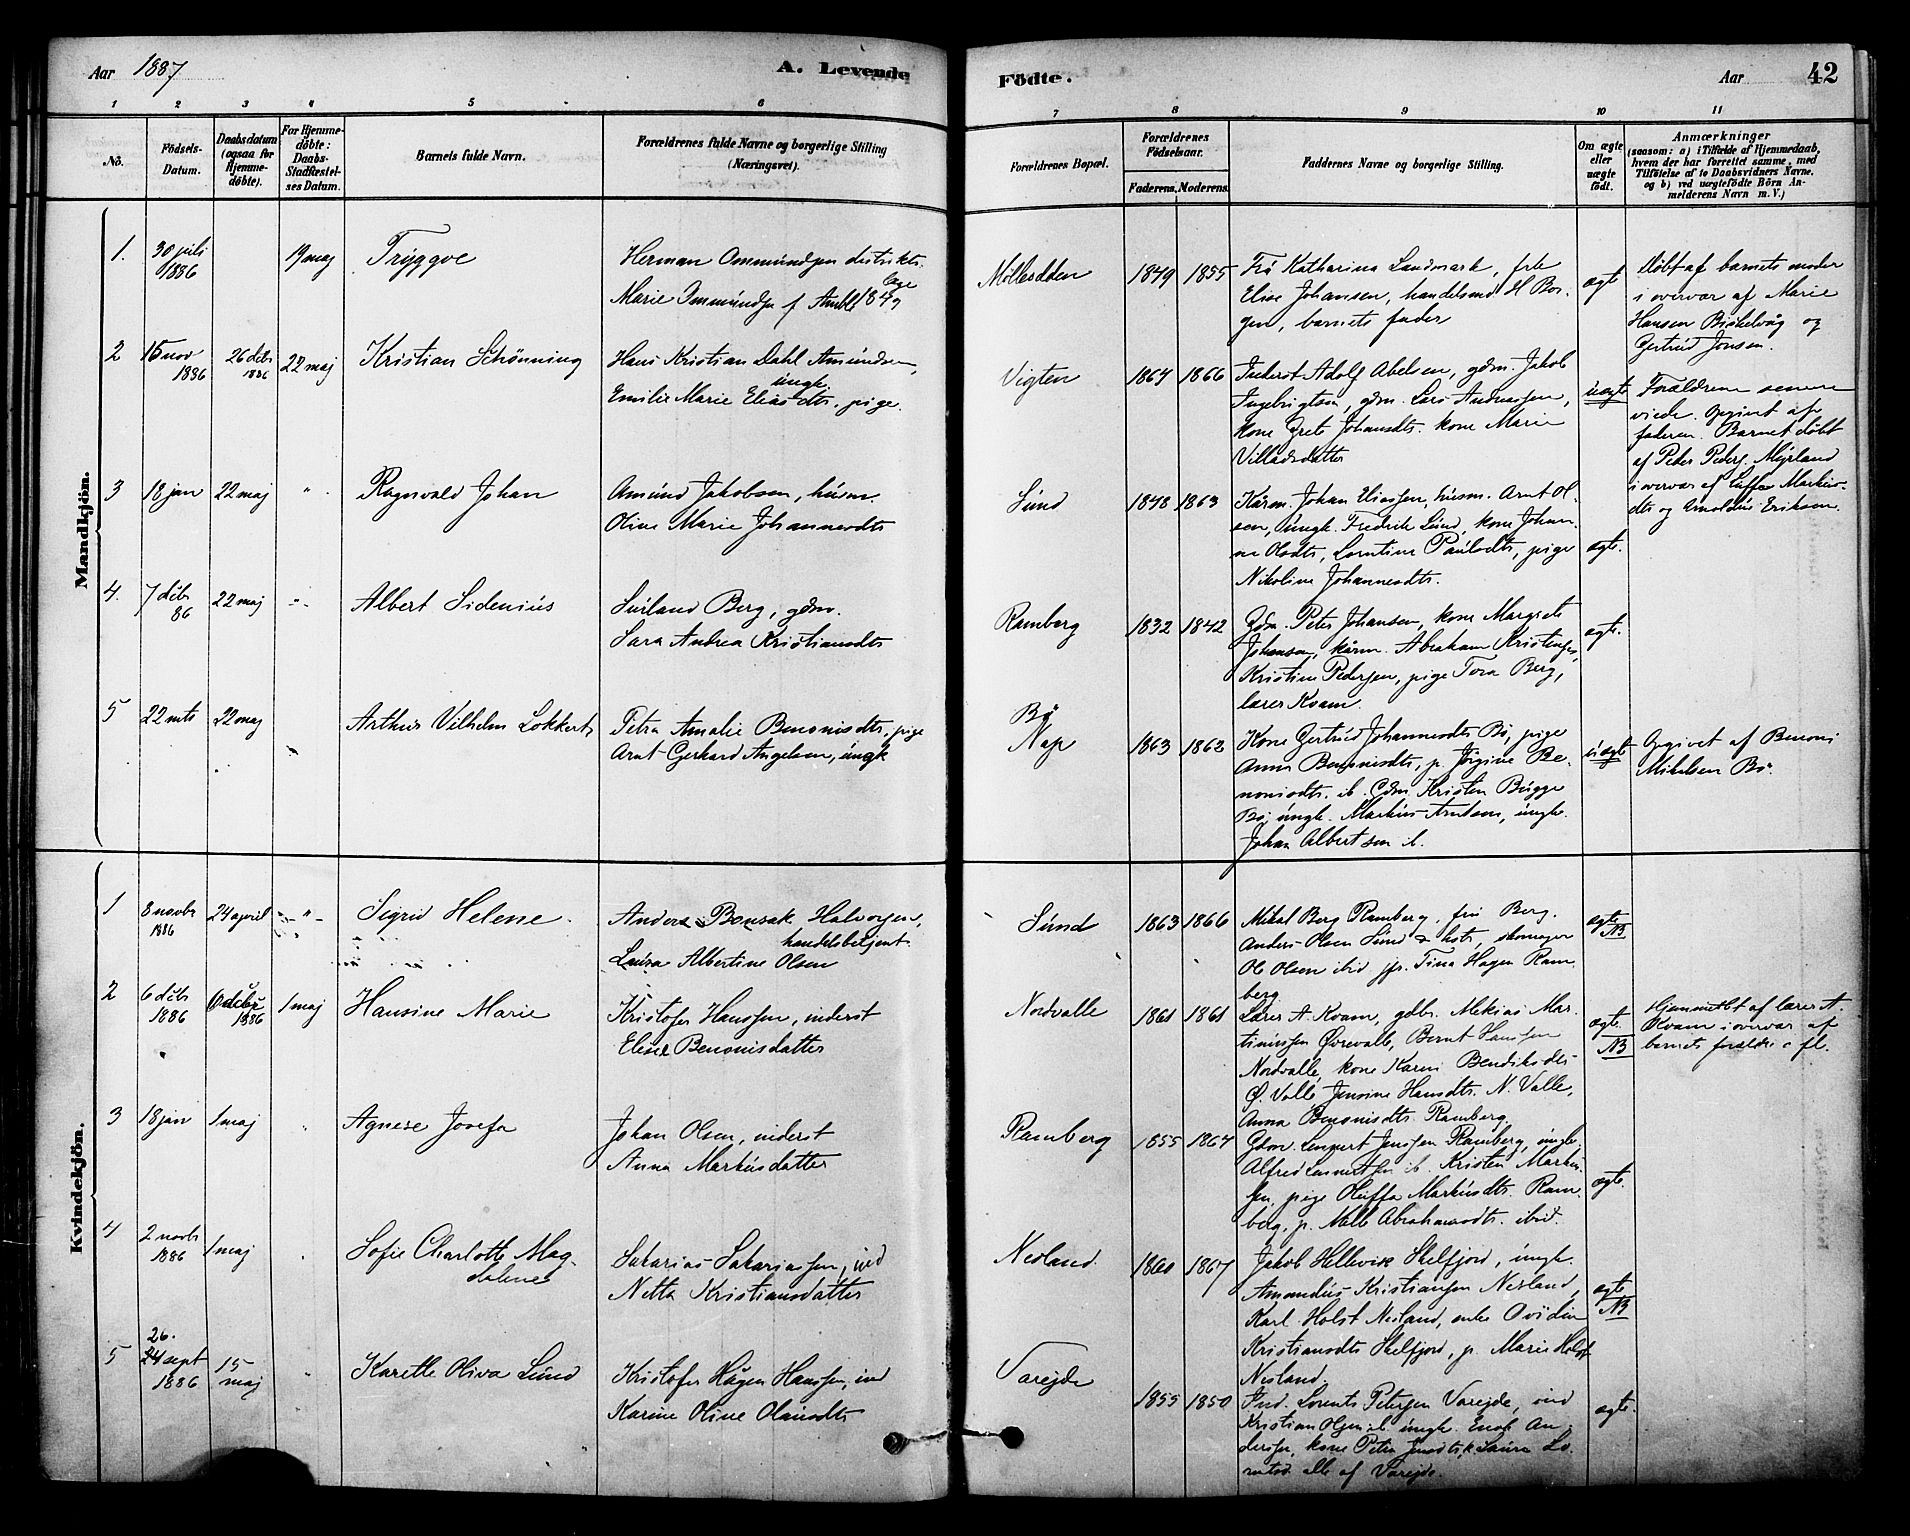 Aar 1887
A. Levende
Födte.
Aar
42
1 2 3 4 5 6 7 8 9 10 11
Nô.
Födsels-
Datum.
Daabsdatum
(ogsaa for
Hjemme-
döbte).
For Hjemme-
döbte:
Daabs-
Stadfæstel-
ses Datum.
Barnets fulde Navn.
Forældrenes fulde Navne og borgerlige Stilling
(Næringsvei).
Forældrenes Bopæl.
Forældrenes
Födselsaar.
Faderens. Moderens.
Faddernes Navne og borgerlige Stilling.
Om ægte
eller
uægte
födt.
Anmærkninger
(saasom: a) i Tilfælde af Hjemmedaab,
hvem der har forrettet samme, med
Tilföielse af to Daabsvidners Navne,
og b) ved uægtefödte Börn An-
melderens Navn m. V.)
Mandkjön.
1. 30 juli
1886
19 maj
Tryggve
Herman Ommundsen distrikts-
læge
Marie Ommundsen f. Ambli 1849
1849 1855
Frø Katharina Landmark, frk
Elise Johansen, handelsmd H Bor-
gen, barnets fader
ægt
Döbt af barnets moder
i overvær af Marie
Hansen Birkelvåg og
Gertrud Jonsen.
2 15 nov
1886
26 debr
1886
22 maj
Kristian Schönning
Hans Kristian Dahl Amundsen,
ungk.
Emilie Marie Eliasdtr. pige.
Vigten
1864 1866
Inderst Adolf Abelsen, gdm. Jakob
Ingebrigtsen, gdm. Lars Andreassen,
kone Grete Johansdtr. kone Marie
Villadsdatter
uægte
Forældrene senere
viede. Opgivet af
faderen. Barnet döbt
af Peder Peders. Myrland
i overvær af Markus-
dtr og Arnoldus Eriksen.
3 18 jan 22 maj "
Ragnvald Johan
Amund Jakobsen, husm.
Oline Marie Johannesdtr
Sund
1848 1863
Kårm. Johan Eliassen, husm. Arnt Ol-
sen, ungk. Fredrik Lund, kone Johan-
ne Olsdtr, Lorntine Paulsdtr, pige
Nikoline Johannesdtr.
ægte.
4. 7 debr
86
22 maj -"-
Albert Sidenius
Surland Berg, gdm.
Sara Andrea Kristiansdtr
Ramberg
1832 1842
Gdm. Peter Johansen, kone Margrete
Johansen, kårm. Abraham Kristensen,
Kristine Pedersen, pige Tora Berg,
lærer Kvam.
ægte.
5 22 mts 22 maj
Arthur Vilhelm Lokkert
Petra Amalie Benonisdtr. pige
Arnt Gerhard Angelsen, ungk
Bö
Nap
1863 1862
Kone Gertrud Johannesdtr Bö, pige
Anna Benonisdtr, p. Jörgine Be-
nonisdtr. ib. Gdm. Kristen Bugge
Bö, ungk. Markus Arntsen, ungk.
Johan Albertsen ib.
uægte
Opgivet af Benoni
Mikelsen Bö.
Kvindekjön.
1 8 novbr
1886
24 april -"-
Sigrid Helene
Anders Bonsak Halvorsen,
handelsbetjent
Laura Albertine Olsen
Sund
1863 1866
Mikal Berg Ramberg, fru Berg.
Anders Olsen Sund & hstr, skomager
Ol Olsen ibid jfr. Tina Hagen Ram-
berg
ægte
NB
2 6 debr
1886
6 debr
1886
1 maj
Hansine Marie
Kristofer Hanssen, inderst
Eline Benonisdatter
Nordvalle
1861 1861
Lærer A. Kvam, gdbr. Mekias Mar-
tinussen Övrevalle, Bernt Hanssen
Nordvalle, kone Karen Bendiksdtr
Ö. Valle Jensine Hansdtr. N. Valle,
Anna Benonisdtr. Ramberg.
ægte.
NB
Hjemmedöbt af lærer A.
Kvam i overvær af
barnets forældre o fl.
3 18 jan 1 maj "
Agnese Josefa
Johan Olsen, inderst
Anna Markusdatter
Ramberg
1855 1864
Gdm. Lennert Jenssen Ramberg, ungk.
Alfred Lennertsen ib. Kristen Marku-
sen, pige Oluffa Markusdtr. Ram-
berg, p. Melle Abrahamsdtr. ibid.
ægte.
4 2 novbr
1886
1 maj "
Sofie Charlotte Mag-
dalene
Sakarias Sakariassen, ind
Netta Kristiansdatter
Nesland.
1860 1867
Jakob Hellevik Skelfjord, ungk.
Amandus Kristiansen Nesland,
Karl Holst Nesland, enke Ovidia
Kristiansdtr Skelfjord, p. Marie Holst
Nesland.
ægte
NB
5 26.
24 sept
1886
15
maj
"
Karette Oliva Lund
Kristofer Hagen Hanssen, ind
Karine Oline Olausdtr
Varejde
1855 1850
Ind. Lorents Petersen Varejde, ind
Kristian Olsen ib. ungk. Enok An-
derssen, kone Petra Jensdtr, p. Laura Lo-
rntsd. alle af Varejde.
ægte.